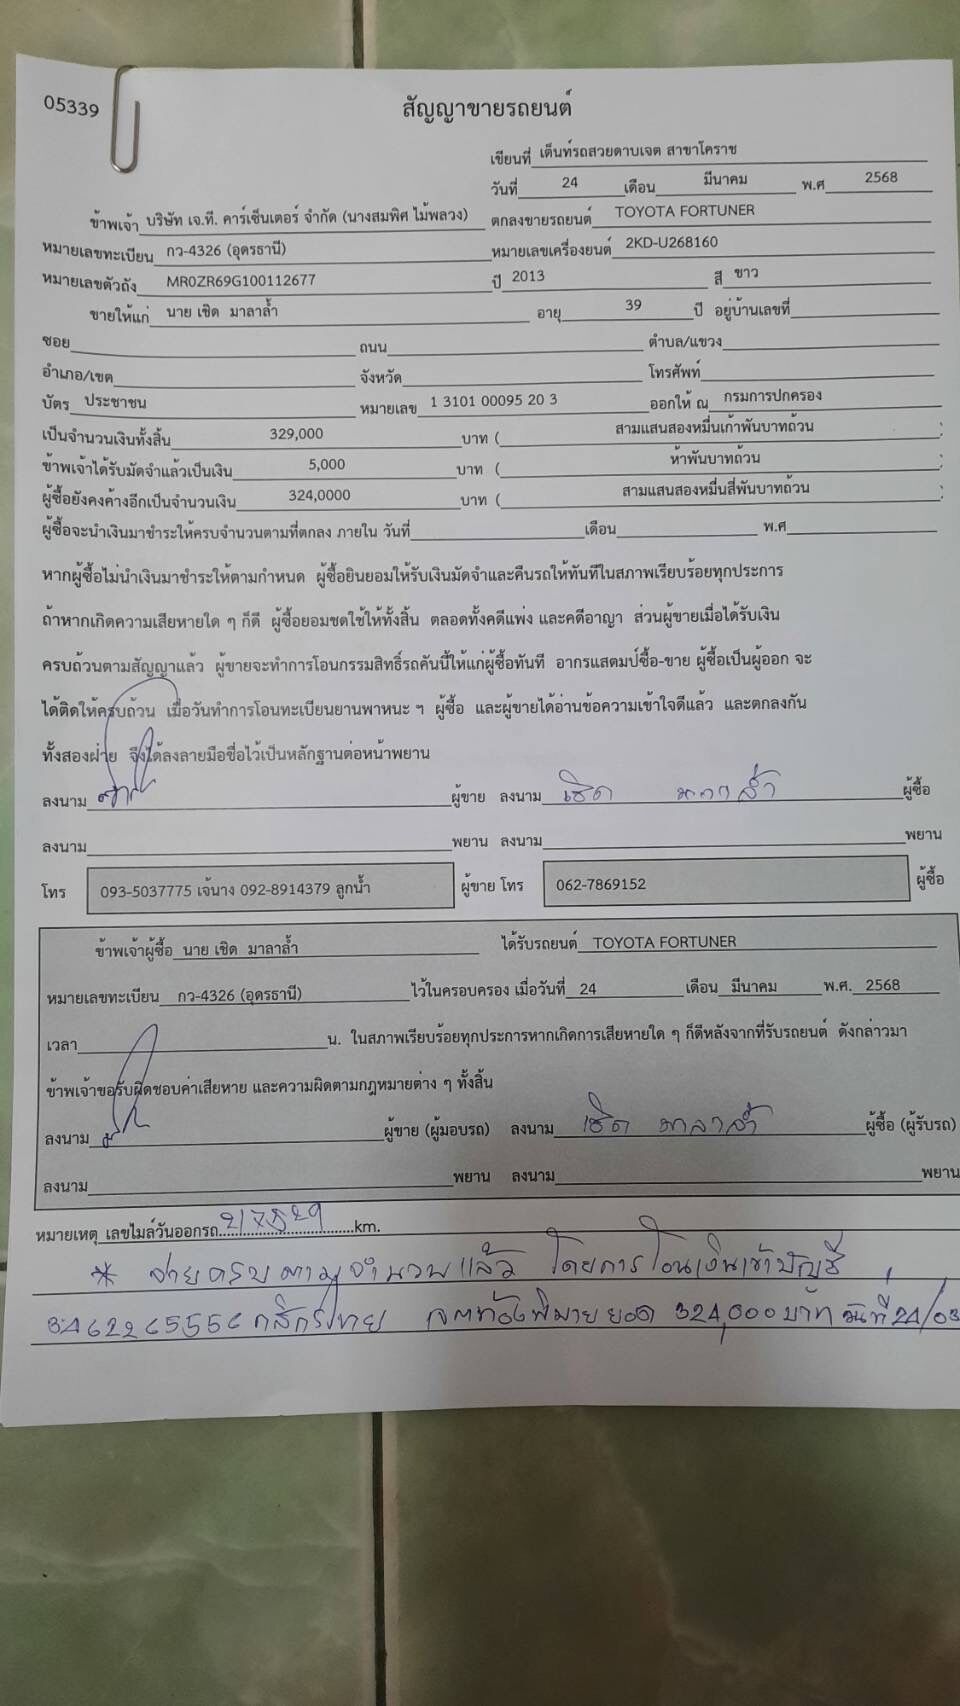 05339
สัญญาขายรถยนต์
เขียนที่ เต็นท์รถสวยดาบเจต สาขาโคราช
วันที่ 24 เดือน มีนาคม พ.ศ 2568
ข้าพเจ้า บริษัท เจ.ที. คาร์เซ็นเตอร์ จำกัด (นางสมพิศ ไม้พลวง) ตกลงขายรถยนต์ TOYOTA FORTUNER
หมายเลขทะเบียน กว-4326 (อุดรธานี) หมายเลขเครื่องยนต์ 2KD-U268160
หมายเลขตัวถัง MR0ZR69G100112677 ปี 2013 สี ขาว
ขายให้แก่ นาย เชิด มาลาล้ำ อายุ 39 ปี อยู่บ้านเลขที่
ซอย ถนน ตำบล/แขวง
อำเภอ/เขต จังหวัด โทรศัพท์
บัตร ประชาชน หมายเลข 1 3101 00095 20 3 ออกให้ ณ กรมการปกครอง
เป็นจำนวนเงินทั้งสิ้น 329,000 บาท ( สามแสนสองหมื่นเก้าพันบาทถ้วน )
ข้าพเจ้าได้รับมัดจำแล้วเป็นเงิน 5,000 บาท ( ห้าพันบาทถ้วน )
ผู้ซื้อยังคงค้างอีกเป็นจำนวนเงิน 324,0000 บาท ( สามแสนสองหมื่นสี่พันบาทถ้วน )
ผู้ซื้อจะนำเงินมาชำระให้ครบจำนวนตามที่ตกลง ภายใน วันที่ เดือน พ.ศ
หากผู้ซื้อไม่นำเงินมาชำระให้ตามกำหนด ผู้ซื้อยินยอมให้รับเงินมัดจำและคืนรถให้ทันทีในสภาพเรียบร้อยทุกประการ
ถ้าหากเกิดความเสียหายใด ๆ ก็ดี ผู้ซื้อยอมชดใช้ให้ทั้งสิ้น ตลอดทั้งคดีแพ่ง และคดีอาญา ส่วนผู้ขายเมื่อได้รับเงิน
ครบถ้วนตามสัญญาแล้ว ผู้ขายจะทำการโอนกรรมสิทธิ์รถคันนี้ให้แก่ผู้ซื้อทันที อากรแสตมป์ซื้อ-ขาย ผู้ซื้อเป็นผู้ออก จะ
ได้ติดให้ครบถ้วน เมื่อวันทำการโอนทะเบียนยานพาหนะ ฯ ผู้ซื้อ และผู้ขายได้อ่านข้อความเข้าใจดีแล้ว และตกลงกัน
ทั้งสองฝ่าย จึงได้ลงลายมือชื่อไว้เป็นหลักฐานต่อหน้าพยาน
ลงนาม ผู้ขาย ลงนาม เชิด มาลาล้ำ ผู้ซื้อ
ลงนาม พยาน ลงนาม พยาน
โทร 093-5037775 เจ้นาง 092-8914379 ลูกน้ำ ผู้ขาย โทร 062-7869152 ผู้ซื้อ
ข้าพเจ้าผู้ซื้อ นาย เชิด มาลาล้ำ ได้รับรถยนต์ TOYOTA FORTUNER
หมายเลขทะเบียน กว-4326 (อุดรธานี) ไว้ในครอบครอง เมื่อวันที่ 24 เดือน มีนาคม พ.ศ. 2568
เวลา น. ในสภาพเรียบร้อยทุกประการหากเกิดการเสียหายใด ๆ ก็ดีหลังจากที่รับรถยนต์ ดังกล่าวมา
ข้าพเจ้าขอรับผิดชอบค่าเสียหาย และความผิดตามกฎหมายต่าง ๆ ทั้งสิ้น
ลงนาม ผู้ขาย (ผู้มอบรถ) ลงนาม เชิด มาลาล้ำ ผู้ซื้อ (ผู้รับรถ)
ลงนาม พยาน ลงนาม พยาน
หมายเหตุ เลขไมล์วันออกรถ km.
* จ่ายครบตามจำนวนแล้ว โดยการโอนเงินเข้าบัญชี
กสิกรไทย ยอด 324,000 บาท วันที่ 24/03